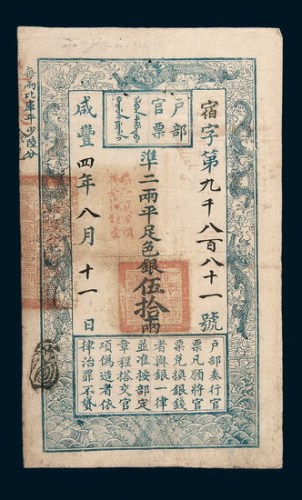 户部
官票
宿字第九千八百八十一號
準二兩平足色銀伍拾兩
咸豐四年八月十一日
每兩比庫平少陸分
户部奏行官
票凡願將官
票兌換銀錢
者與銀一律
並准按部定
章程搭交官
項偽造者依
律治罪不貸